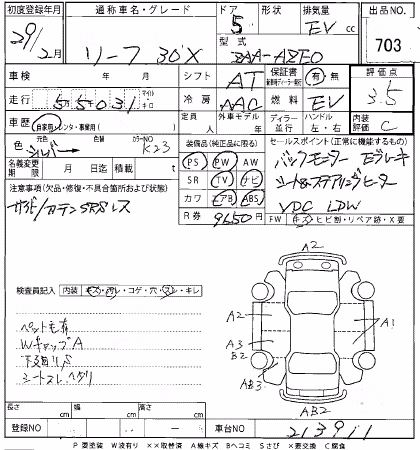 初度登録年月 通称車名・グレード ドア 形状 排気量 出品NO.
29/2月 リーフ 30'X 5 EV cc 703
型式 ZAA-AZE0
車検 年 月 シフト AT 保証書 有 無 評価点 3.5
走行 55031 マイル キロ 冷房 AAC 燃料 EV 内装評価 C
車歴 自家用 レンタ・事業用 定員 人 外車モデル 年 ディーラー 並行 ハンドル 左・右
色 元色 シルバー 色 カラーNO. K23 装備品(純正品に限る) セールスポイント(正常に機能するもの)
名義変更期限 月 日迄 積載 t PS PW AW バックモニター Eブレーキ
注意事項(欠品・修復・不具合箇所および状態) SR TV ナビ シート&ステアリングヒーター
サイド/カーテンSRSレス カワ エアB ABS VDC LDW
R券 9650円 FW キズ・ヒビ割・リペア跡・X要
検査員記入 内装 キズ・汚レ・コゲ・穴・スレ・キレ
ペット毛有
WキャップA
下廻りS
シートスレ、ヘタリ
A2
A2
A1
A3
B2
AB3
AB2
長さ cm 幅 cm 高さ cm
登録NO 車台NO 213911
P 要塗装 W波有り ××取替済 A線キズ Bヘコミ Sさび ×要交換 C腐食